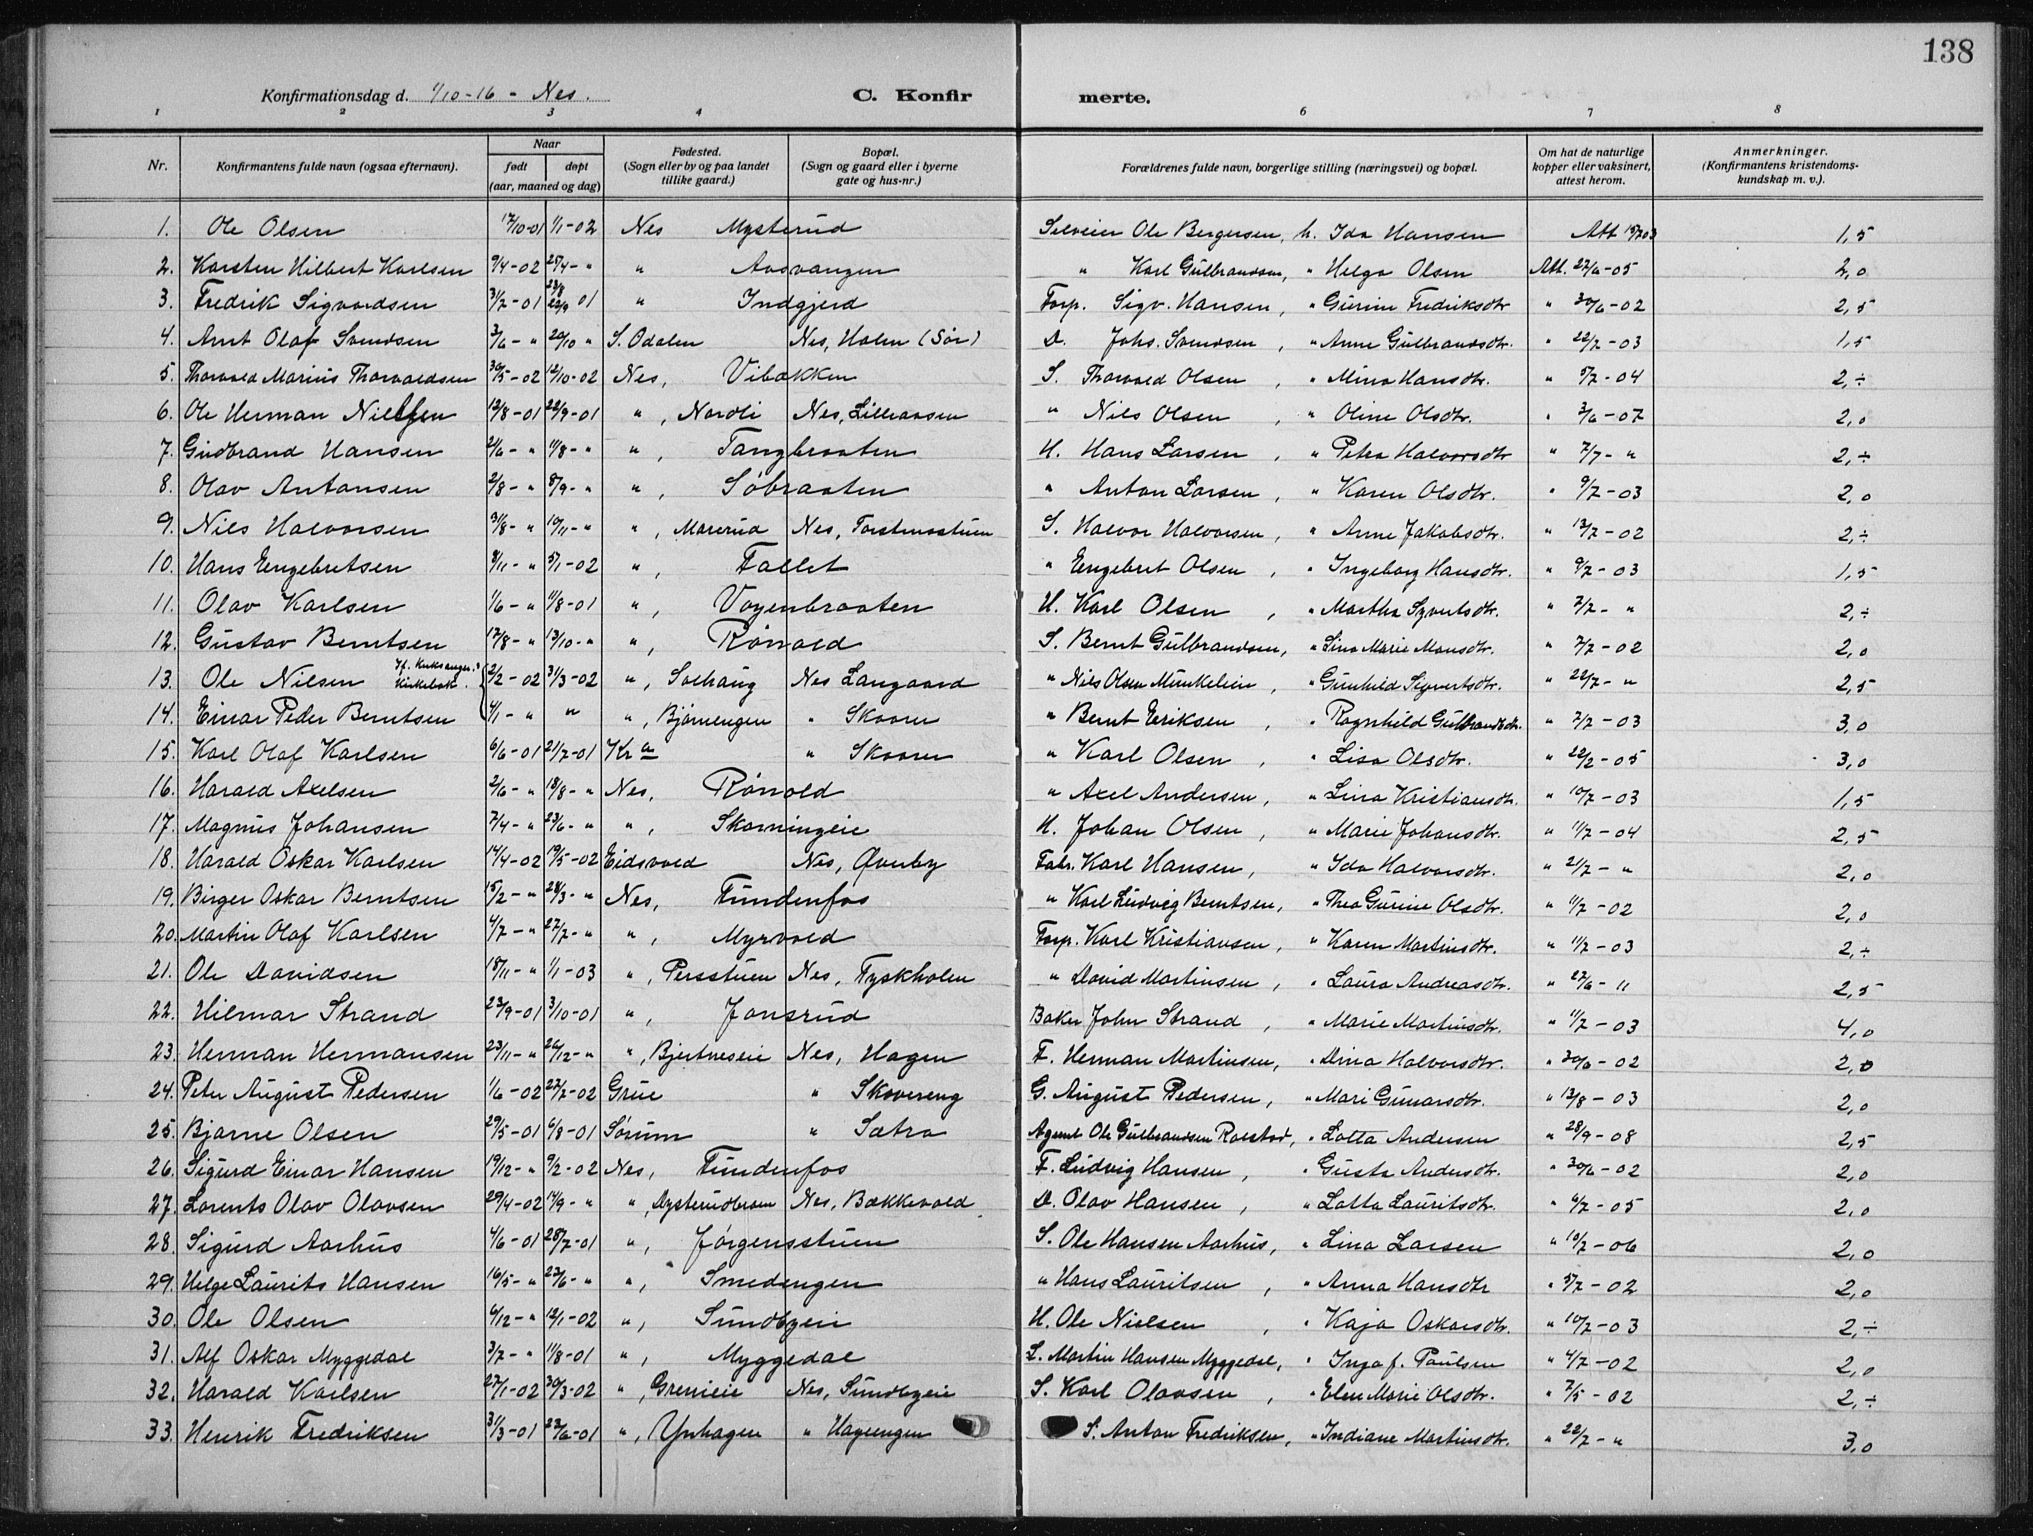 138
Konfirmationsdag d. 1/10-16 - Nes. C. Konfir merte.
1 2 3 4 6 7 8
Nr. Konfirmantens fulde navn (ogsaa efternavn). Naar født døpt (aar, maaned og dag) Fødested. (Sogn eller by og paa landet tillike gaard.) Bopæl. (Sogn og gaard eller i byerne gate og hus-nr.) Forældrenes fulde navn, borgerlige stilling (næringsvei) og bopæl. Om hat de naturlige kopper eller vaksinert, attest herom. Anmerkninger. (Konfirmantens kristendoms- kundskap m. v.).
1. Ole Olsen 17/10-01 1/1-02 Nes Mysterud Selveier Ole Bergersen, h. Ida Hansen Att 1,5
2. Karsten Hilbert Karlsen 9/4-02 25/4-" " Aasvangen " Karl Gulbrandsen, " Helga Olsen Att. 22/6-05 2,0
3. Fredrik Sigvardsen 3/7-01 22/9 01 " Indgjerd Forp. Sigv. Hansen, " Gurine Fredriksdtr " 30/6-02 2,5
4. Arnt Olaf Svendsen 3/6-" 20/10 " S. Odalen Nes, Holen (Sør) D. Johs. Svendsen, " Anne Gulbrandsdtr. " 22/7-03 1,5
5. Thorvald Marius Thorvaldsen 30/5-02 12/10-02 Nes, Vibakken S. Thorvald Olsen, " Mina Hansdtr. " 5/7-04 2,÷
6. Ole Herman Nielsen 12/8-01 22/9-01 ", Nordli Nes, Lilleaasen " Nils Olsen, " Oline Olsdtr. " 3/6-07 2,0
7. Gudbrand Hansen 2/6-" 11/8-" ", Tangbraaten H. Hans Larsen, " Petra Halvorsdtr " 7/7-" 2,÷
8. Olav Antonsen 2/8-" 8/9-" ", Søbraaten " Anton Larsen, " Karen Olsdtr. " 9/7-03 2,0
9. Nils Halvorsen 31/8-" 10/11-" ", Marerud Nes, Torstmostuen S. Halvor Halvorsen, " Anne Jakobsdtr. " 13/7-02 2,÷
10. Hans Engebretsen 8/11-" 5/1-02 ", Fallet " Engebret Olsen, " Ingeborg Hansdtr. " 9/7-03 1,5
11. Olav Karlsen 1/6-" 11/8-01 ", Vogenbraaten H. Karl Olsen, " Martha Syvertsdtr. " 7/7-" 2,÷
12. Gustav Berntsen 17/8-" 13/10-" ", Rønold S. Bernt Gulbrandsen, " Lina Marie Mansdtr. " 7/7-02 2,0
13. Ole Nilsen 2/2-02 31/3-02 ", Solhaug Nes Langaard " Nils Olsen Munkelien, " Gunhild Sigvertsdtr. " 22/7-" 2,5
14. Einar Peder Berntsen 4/1-" " ", Bjørnengen " Skaaren " Bernt Eriksen, " Ragnhild Gulbrandsdtr. " 7/7-03 3,0
15. Karl Olaf Karlsen 6/6-01 21/7-01 Kra " Skaaren " Karl Olsen, " Lisa Olsdtr. " 22/2-05 3,0
16. Harald Axelsen 2/6-" 18/8-" Nes, Rønold " Axel Andersen, " Lina Kristiansdtr. " 10/7-03 1,5
17. Magnus Johansen 7/4-" 23/6-" ", Skarningeie H. Johan Olsen, " Marie Johansdtr. " 11/7-04 2,5
18. Harald Oskar Karlsen 14/4-02 19/5-02 Eidsvold Nes, Øvruby Fabr. Karl Hansen, " Ida Halvorsdtr. " 21/7-" 2,0
19. Birger Oskar Berntsen 15/2-" 28/3-" Nes, Fundenfos " Karl Ludvig Berntsen, " Thea Gurine Olsdtr. " 11/7-02 2,0
20. Martin Olaf Karlsen 4/7-" 27/7-" ", Myrvold Forp. Karl Kristiansen, " Karen Martinsdtr. " 11/7-03 2,÷
21. Ole Davidsen 18/11-" 1/1-03 ", Persstuen Nes, Tyskholen " David Martinsen, " Laura Andreasdtr. " 27/6-11 2,5
22. Hilmar Strand 23/9-01 3/10-01 ", Jonsrud Baker John Strand, " Marie Martinsdtr. " 11/7-03 4,0
23. Herman Hermansen 23/11-" 26/12-" ", Bjertneseie Nes, Hagen F. Herman Martinsen, " Dina Halvorsdtr. " 30/6-02 2,0
24. Peter August Pedersen 1/6-02 27/7-02 Grue " Skovereng G. August Pedersen, " Mari Gunarsdtr. " 13/8-03 2,0
25. Bjarne Olsen 29/5-01 6/8-01 Sørum " Satra Agent Ole Gulbrandsen Rolstad, " Lotta Andersen " 28/9-08 2,5
26. Sigurd Einar Hansen 19/12-" 9/2-02 Nes, Fundenfos F. Ludvig Hansen, " Gusta Andersdtr. " 30/6-02 2,0
27. Lorents Olav Olavsen 29/4-02 14/9-" ", Dysterudbraen Nes, Bækkevold D. Olav Hansen, " Lotta Lauritsdtr. " 6/7-05 2,0
28. Sigurd Aarhus 4/6-01 28/7-01 ", Jørgensstuen S. Ole Hansen Aarhus, " Lina Larsen " 10/7-06 2,0
29. Helge Laurits Hansen 16/5-" 23/6-" ", Smedengen " Hans Lauritsen, " Anna Hansdtr " 5/7-02 2,0
30. Ole Olsen 4/12-" 12/1-02 ", Sundbyeie H. Ole Nielsen, " Kaja Oskarsdtr. " 10/7-03 2,÷
31. Alf Oskar Myggedal 3/7-" 11/8-01 ", Myggedal L. Martin Hansen Myggedal, " Inga f. Paulsen " 4/7-02 2,0
32. Harald Karlsen 27/1-02 30/3-02 ", Greneie Nes, Sundbyeie S. Karl Olavsen, " Elen Marie Olsdtr. " 7/5-02 2,÷
33. Henrik Fredriksen 31/3-01 23/6-01 ", Ynhagen " Hageengen S. Anton Fredriksen, " Indiane Martinsdtr. " 22/7-" 3,0